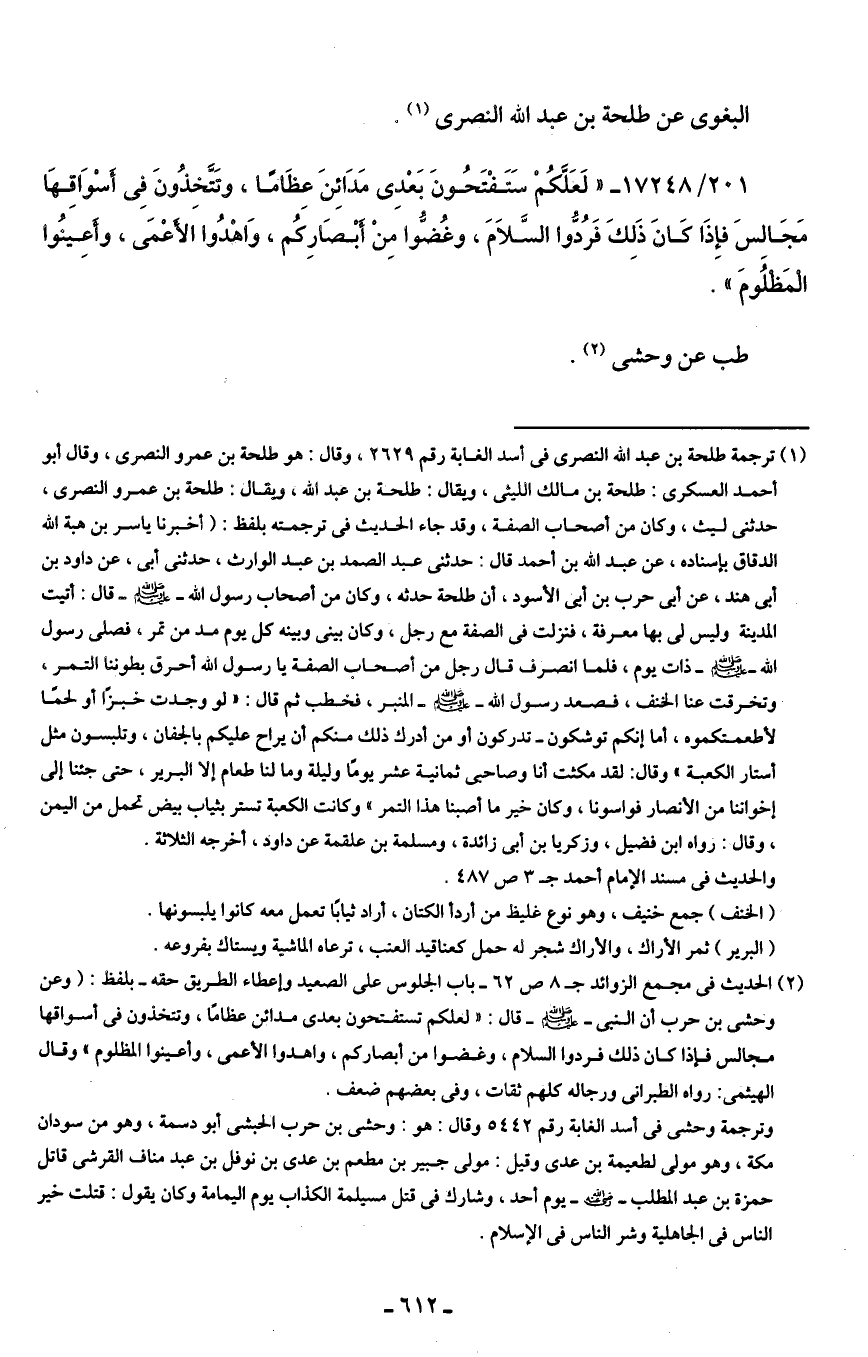 البغوى عن طلحة بن عبد الله النصرى (١) .
١٧٢٤٨/٢٠١ـ « لَعَلَّكُمْ سَتَفْتَحُونَ بَعْدِى مَدَائِنَ عِظَامًا ، وَتَتَّخِذُونَ فِى أَسْوَاقِهَا
مَجَالِسَ فَإِذَا كَانَ ذَلِكَ فَرُدُّوا السَّلاَمَ ، وغُضُّوا مِنْ أَبْصَارِكُم ، وَاهْدُوا الأَعْمَى ، وأَعِينُوا
الْمَظْلُومَ » .
طب عن وحشى (٢) .
(١) ترجمة طلحة بن عبد الله النصرى فى أسد الغابة رقم ٢٦٢٩ ، وقال : هو طلحة بن عمرو النصرى ، وقال أبو
أحمد العسكرى : طلحة بن مالك الليثى ، ويقال : طلحة بن عبد الله ، ويقال : طلحة بن عمرو النصرى ،
حدثنى ليث ، وكان من أصحاب الصفة ، وقد جاء الحديث فى ترجمته بلفظ : ( أخبرنا ياسر بن هبة الله
الدقاق بإسناده ، عن عبد الله بن أحمد قال : حدثنى عبد الصمد بن عبد الوارث ، حدثنى أبى ، عن داود بن
أبى هند ، عن أبى حرب بن أبى الأسود ، أن طلحة حدثه ، وكان من أصحاب رسول الله ـ ﷺ ـ قال : أتيت
المدينة وليس لى بها معرفة ، فنزلت فى الصفة مع رجل ، وكان بينى وبينه كل يوم مد من تمر ، فصلى رسول
الله ـ ﷺ ـ ذات يوم ، فلما انصرف قال رجل من أصحاب الصفة يا رسول الله أحرق بطوننا التمر ،
وتخرقت عنا الخنف ، فصعد رسول الله ـ ﷺ ـ المنبر ، فخطب ثم قال : « لو وجدت خبزًا أو لحمًا
لأطعمتكموه ، أما إنكم توشكون ـ تدركون أو من أدرك ذلك منكم أن يراح عليكم بالجفان ، وتلبسون مثل
أستار الكعبة » وقال: لقد مكثت أنا وصاحبى ثمانية عشر يومًا وليلة وما لنا طعام إلا البرير ، حتى جئنا إلى
إخواتنا من الأنصار فواسونا ، وكان خير ما أصبنا هذا التمر » وكانت الكعبة تستر بثياب بيض تحمل من اليمن
، وقال : رواه ابن فضيل ، وزكريا بن أبى زائدة ، ومسلمة بن علقمة عن داود ، أخرجه الثلاثة .
والحديث فى مسند الإمام أحمد جـ ٣ ص ٤٨٧ .
( الخنف ) جمع خنيف ، وهو نوع غليظ من أردأ الكتان ، أراد ثيابًا تعمل معه كانوا يلبسونها .
( البرير ) ثمر الأراك ، والأراك شجر له حمل كعناقيد العنب ، ترعاه الماشية ويستاك بفروعه .
(٢) الحديث فى مجمع الزوائد جـ ٨ ص ٦٢ ـ باب الجلوس على الصعيد وإعطاء الطريق حقه ـ بلفظ : ( وعن
وحشى بن حرب أن النبى ـ ﷺ ـ قال : « لعلكم تستفتحون بعدى مدائن عظامًا ، وتتخذون فى أسواقها
مجالس فإذا كان ذلك فردوا السلام ، وغضوا من أبصاركم ، واهدوا الأعمى ، وأعينوا المظلوم » وقال
الهيثمى: رواه الطبرانى ورجاله كلهم ثقات ، وفى بعضهم ضعف .
وترجمة وحشى فى أسد الغابة رقم ٥٤٤٢ وقال : هو : وحشى بن حرب الحبشى أبو دسمة ، وهو من سودان
مكة ، وهو مولى لطعيمة بن عدى وقيل : مولى جبير بن مطعم بن عدى بن نوفل بن عبد مناف القرشى قاتل
حمزة بن عبد المطلب ـ رضي الله عنه ـ يوم أحد ، وشارك فى قتل مسيلمة الكذاب يوم اليمامة وكان يقول : قتلت خير
الناس فى الجاهلية وشر الناس فى الإسلام .
ـ ٦١٢ ـ